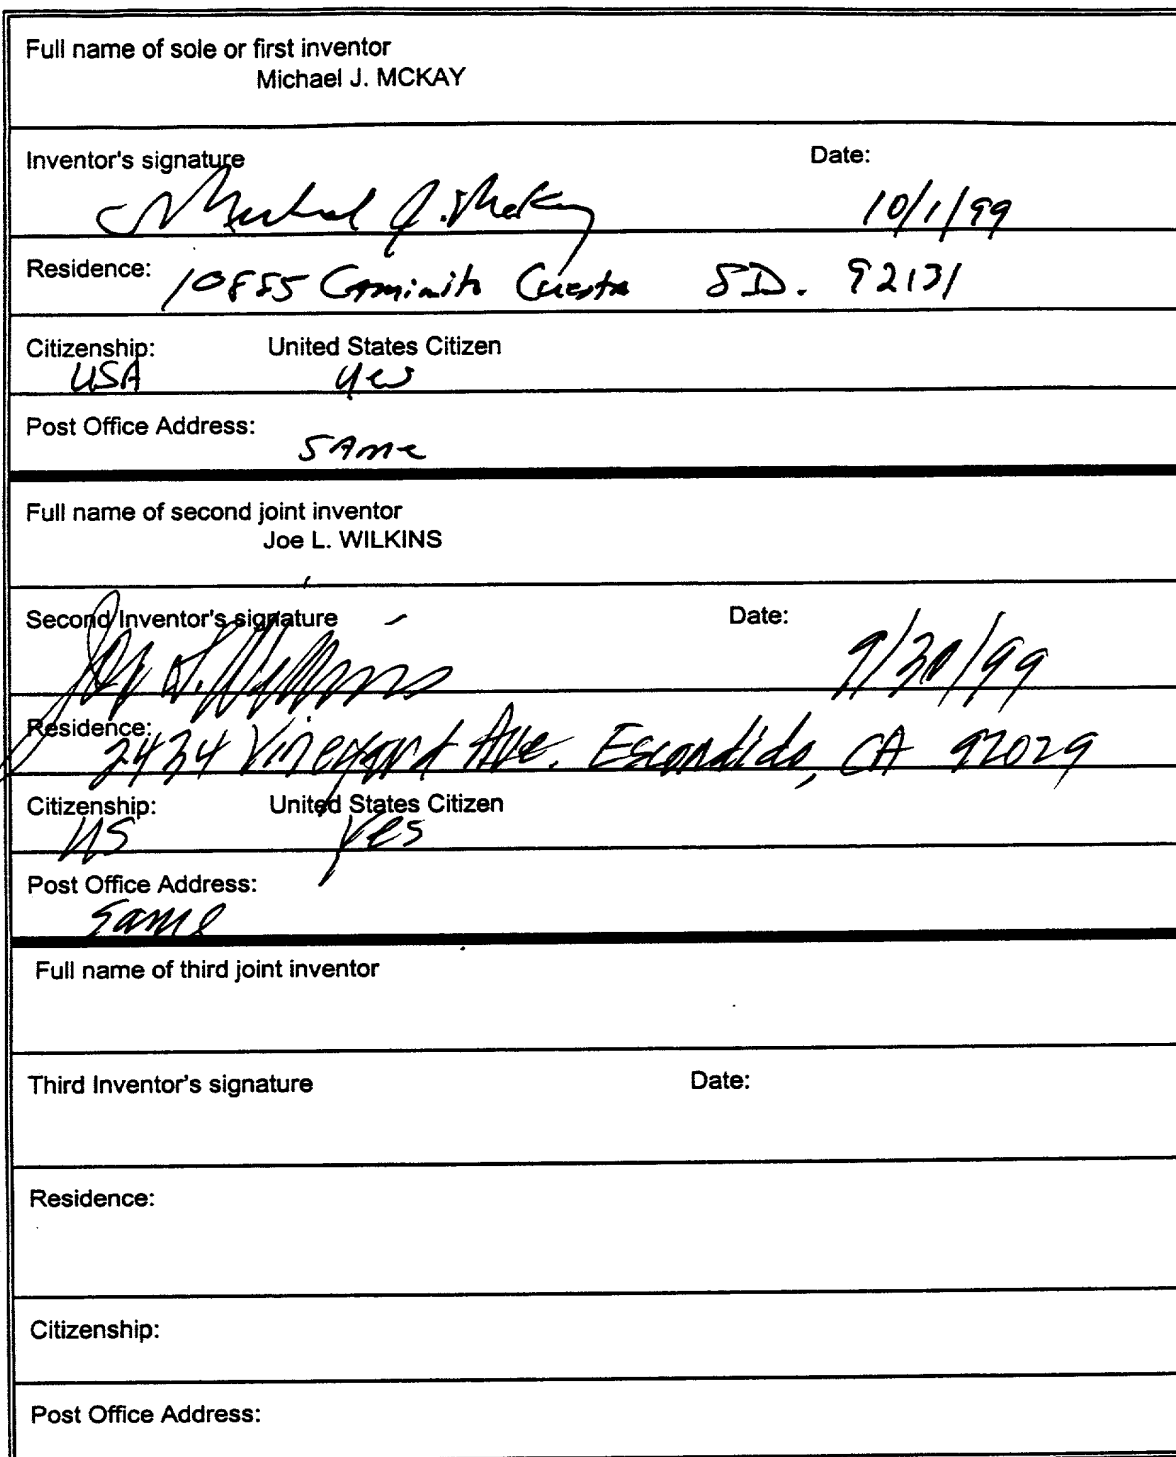 Full name of sole or first inventor
Michael J. MCKAY
Inventor's signature Date:
Michael J. McKay 10/1/99
Residence: 10885 Caminito Cuesta S.D. 92131
Citizenship: United States Citizen
USA yes
Post Office Address:
SAme
Full name of second joint inventor
Joe L. WILKINS
Second Inventor's signature Date:
Joe L. Wilkins 9/30/99
Residence:
2434 Vineyard Ave. Escondido, CA 92029
Citizenship: United States Citizen
US Yes
Post Office Address:
Same
Full name of third joint inventor
Third Inventor's signature Date:
Residence:
Citizenship:
Post Office Address: